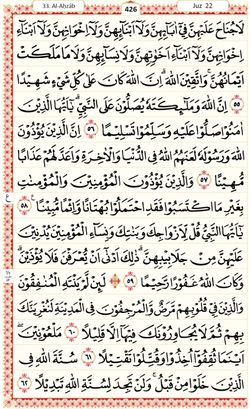 33. Al-Aḥzāb 426 Juz 22
لَا جُنَاحَ عَلَيْهِنَّ فِىٓ اٰبَآئِهِنَّ وَلَآ اَبْنَآئِهِنَّ وَلَآ اِخْوَانِهِنَّ وَلَآ اَبْنَآءِ
اِخْوَانِهِنَّ وَلَآ اَبْنَآءِ اَخَوٰتِهِنَّ وَلَا نِسَآئِهِنَّ وَلَا مَا مَلَكَتْ
اَيْمَانُهُنَّ ۚ وَاتَّقِيْنَ اللّٰهَ ؕ اِنَّ اللّٰهَ كَانَ عَلٰى كُلِّ شَىْءٍ شَهِيْدًا
﴿۵۵﴾ اِنَّ اللّٰهَ وَمَلٰٓئِكَتَهٗ يُصَلُّوْنَ عَلَى النَّبِىِّ ؕ يٰٓاَيُّهَا الَّذِيْنَ
اٰمَنُوْا صَلُّوْا عَلَيْهِ وَسَلِّمُوْا تَسْلِيْمًا ﴿۵۶﴾ اِنَّ الَّذِيْنَ يُؤْذُوْنَ
اللّٰهَ وَرَسُوْلَهٗ لَعَنَهُمُ اللّٰهُ فِى الدُّنْيَا وَالْاٰخِرَةِ وَاَعَدَّ لَهُمْ عَذَابًا
مُّهِيْنًا ﴿۵۷﴾ وَالَّذِيْنَ يُؤْذُوْنَ الْمُؤْمِنِيْنَ وَالْمُؤْمِنٰتِ
بِغَيْرِ مَا اكْتَسَبُوْا فَقَدِ احْتَمَلُوْا بُهْتَانًا وَّاِثْمًا مُّبِيْنًا ﴿۵۸﴾
يٰٓاَيُّهَا النَّبِىُّ قُلْ لِّاَزْوَاجِكَ وَبَنٰتِكَ وَنِسَآءِ الْمُؤْمِنِيْنَ يُدْنِيْنَ
عَلَيْهِنَّ مِنْ جَلَابِيْبِهِنَّ ؕ ذٰلِكَ اَدْنٰٓى اَنْ يُّعْرَفْنَ فَلَا يُؤْذَيْنَ ؕ
وَكَانَ اللّٰهُ غَفُوْرًا رَّحِيْمًا ﴿۵۹﴾ لَئِنْ لَّمْ يَنْتَهِ الْمُنٰفِقُوْنَ
وَالَّذِيْنَ فِىْ قُلُوْبِهِمْ مَّرَضٌ وَّالْمُرْجِفُوْنَ فِى الْمَدِيْنَةِ لَنُغْرِيَنَّكَ
بِهِمْ ثُمَّ لَا يُجَاوِرُوْنَكَ فِيْهَآ اِلَّا قَلِيْلًا ﴿۶۰﴾ مَّلْعُوْنِيْنَ ۛۚ
اَيْنَمَا ثُقِفُوْٓا اُخِذُوْا وَقُتِّلُوْا تَقْتِيْلًا ﴿۶۱﴾ سُنَّةَ اللّٰهِ فِى
الَّذِيْنَ خَلَوْا مِنْ قَبْلُ ۚ وَلَنْ تَجِدَ لِسُنَّةِ اللّٰهِ تَبْدِيْلًا ﴿۶۲﴾